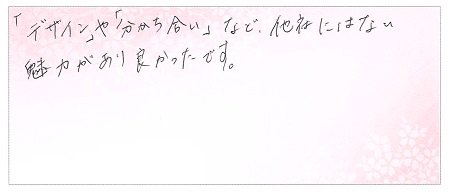 「デザイン」や「分かち合い」など、他社にはない
魅力があり良かったです。